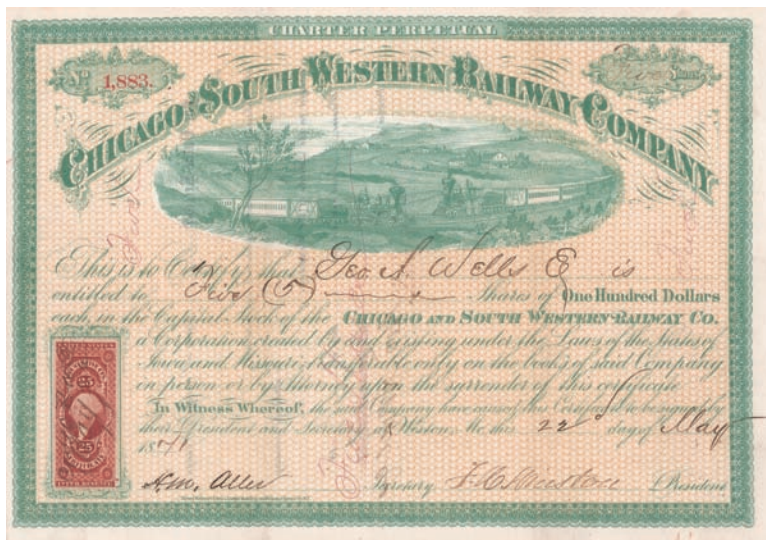 CHARTER PERPETUAL
No 1,883.
Five Shares
CHICAGO AND SOUTH WESTERN RAILWAY COMPANY
This is to Certify that Geo. S. Wells is
entitled to Five (5) Shares of One Hundred Dollars
each, in the Capital Stock of the CHICAGO AND SOUTH WESTERN RAILWAY CO.
a Corporation created by and existing under the Laws of the States of
Iowa and Missouri, transferable only on the books of said Company
on person or by Attorney upon the surrender of this certificate
In Witness Whereof, the said Company have caused this Certificate to be signed by
their President and Secretary at Weston, Mo. this 22d day of May
1871
25
25
Secretary
President